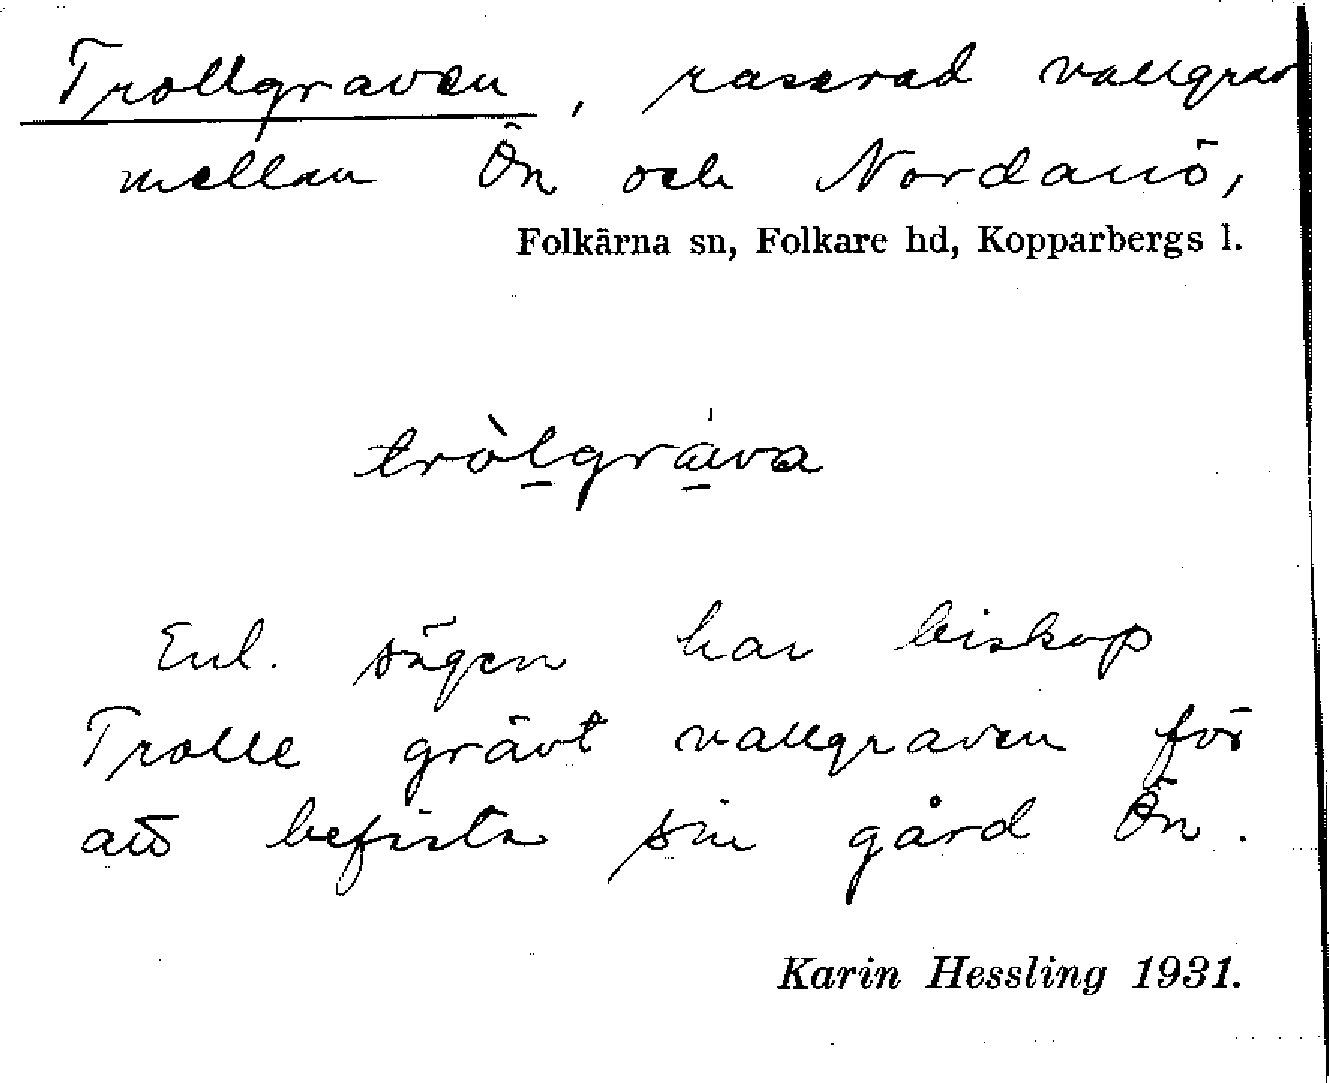 Trollgraven, raserad vallgrav
mellan Ön och Nordanö,
Folkärna sn, Folkare hd, Kopparbergs l.
tròlgráva
Enl. sägen har biskop
Trolle grävt vallgraven för
att befästa sin gård Ön.
Karin Hessling 1931.